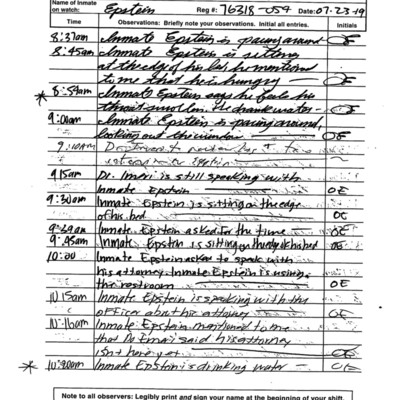 Name of Inmate
on watch: Epstein Reg #: 76318-054 Date: 07-23-19
Time Observations: Briefly note your observations. Initial all entries. Initials
8:37am Inmate Epstein is pacing around OE
8:45am Inmate Epstein is sitting
at the edge of his bed he mentioned
time that he is hungry — OE
* 8:59am Inmate Epstein says he feels his
throat swollen. drank water — OE
9:00am Inmate Epstein is pacing around,
looking out the window OE
9:10am
Epstein
9:15am Dr. is still speaking with
Inmate Epstein OE
9:30am Inmate Epstein is sitting on the edge
of his bed OE
9:39am Inmate Epstein asked for the time OE
9:45am Inmate Epstein is sitting on the edge of his bed OE
10:00 Inmate Epstein asked to speak with
his attorney. Inmate Epstein is using
the restroom OE
10:15am Inmate Epstein is speaking with the
officer about his attorney OE
10:16am Inmate Epstein mentioned to me
that Dr. said his attorney
isn't here yet OE
* 10:20am Inmate Epstein is drinking water — OE
Note to all observers: Legibly print and sign your name at the beginning of your shift.